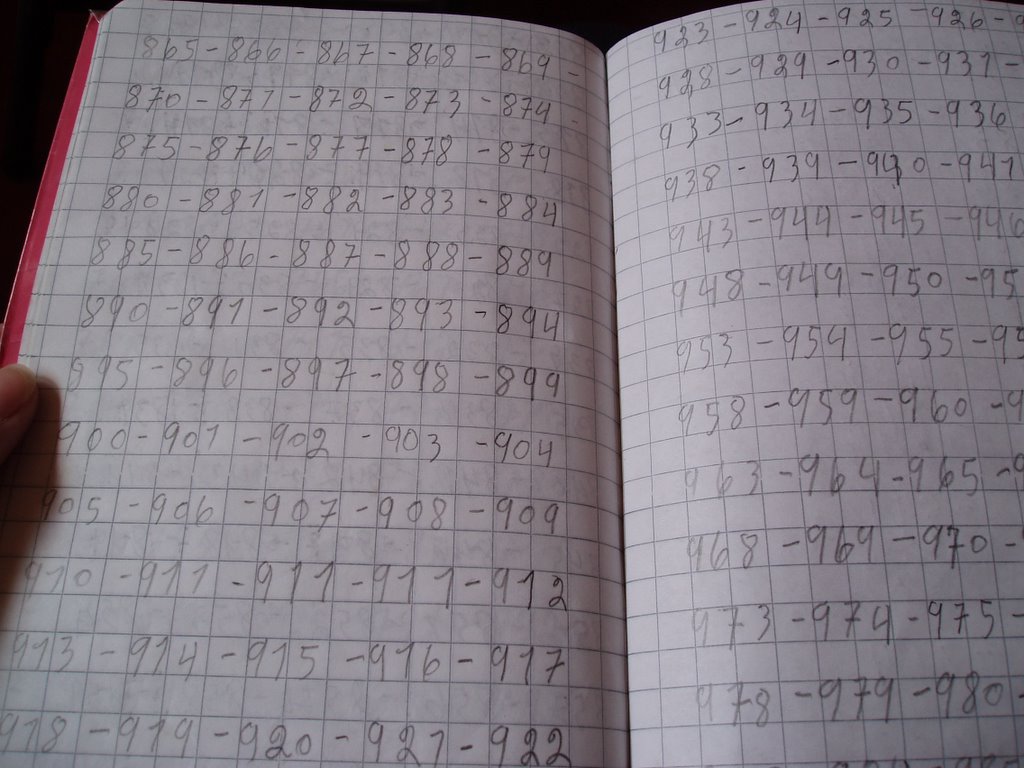 865-866-867-868-869-
870-871-872-873-874
875-876-877-878-879
880-881-882-883-884
885-886-887-888-889
890-891-892-893-894
895-896-897-898-899
900-901-902-903-904
905-906-907-908-909
910-911-911-911-912
913-914-915-916-917
918-919-920-921-922
923-924-925-926-
928-929-930-931-
933-934-935-936
938-939-940-941
943-944-945-946
948-949-950-95
953-954-955-95
958-959-960-9
963-964-965-9
968-969-970-
973-974-975-
978-979-980-